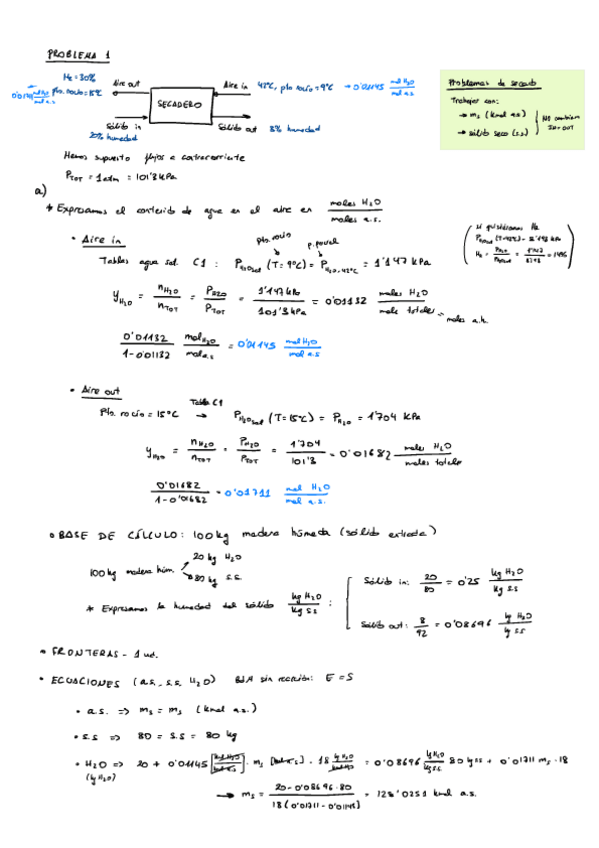 PROBLEMA 1
Hr = 30%
Aire out
Aire in
42ºC, pto. rocío = 9ºC → 0'01145 mol H2O / mol a.s.
SECADERO
Sólido in
20% humedad
Sólido out
8% humedad
Problemas de secado
Trabajar con:
→ ms (kmol a.s.)
→ sólido seco (s.s.)
NO cambian
IN → OUT
Hemos supuesto flujos a contracorriente
PTOT = 1 atm = 101'3 kPa
a)
* Expresamos el contenido de agua en el aire en moles H2O / moles a.s.
• Aire in
pto. rocío
p. parcial
Tablas agua sat. C1: PH2Osat (T = 9ºC) = PH2O, 42ºC = 1'147 kPa
yH2O = nH2O / nTOT = PH2O / PTOT = 1'147 kPa / 101'3 kPa = 0'01132 moles H2O / mole totales = moles a.h.
0'01132 / 1-0'01132 mol H2O / mol a.s = 0'01145 mol H2O / mol a.s
• Aire out
Tabla C1
Pto. rocío = 15ºC → PH2Osat (T = 15ºC) = PH2O = 1'704 kPa
yH2O = nH2O / nTOT = PH2O / PTOT = 1'704 / 101'3 = 0'01682 moles H2O / moles totales
0'01682 / 1-0'01682 = 0'01711 mol H2O / mol a.s.
• BASE DE CÁLCULO: 100 kg madera húmeda (sólido entrada)
100 kg madera húm.
20 kg H2O
80 kg s.s.
* Expresamos la humedad del sólido kg H2O / kg s.s :
Sólido in: 20 / 80 = 0'25 kg H2O / kg s.s
Sólido out: 8 / 92 = 0'08696 kg H2O / kg s.s
• FRONTERAS - 1 ud.
• ECUACIONES (a.s., s.s, H2O) BM sin reacción: E = S
• a.s. => ms = ms (kmol a.s.)
• s.s => 80 = s.s = 80 kg
• H2O => 20 + 0'01145 [kmol H2O / kmol a.s] · ms [kmol a.s] · 18 kg H2O / kmol H2O = 0'08696 kg H2O / kg s.s. 80 kg s.s + 0'01711 ms · 18
(kg H2O)
→ ms = 20 - 0'08696 · 80 / 18 (0'01711 - 0'01145) = 128'0251 kmol a.s.